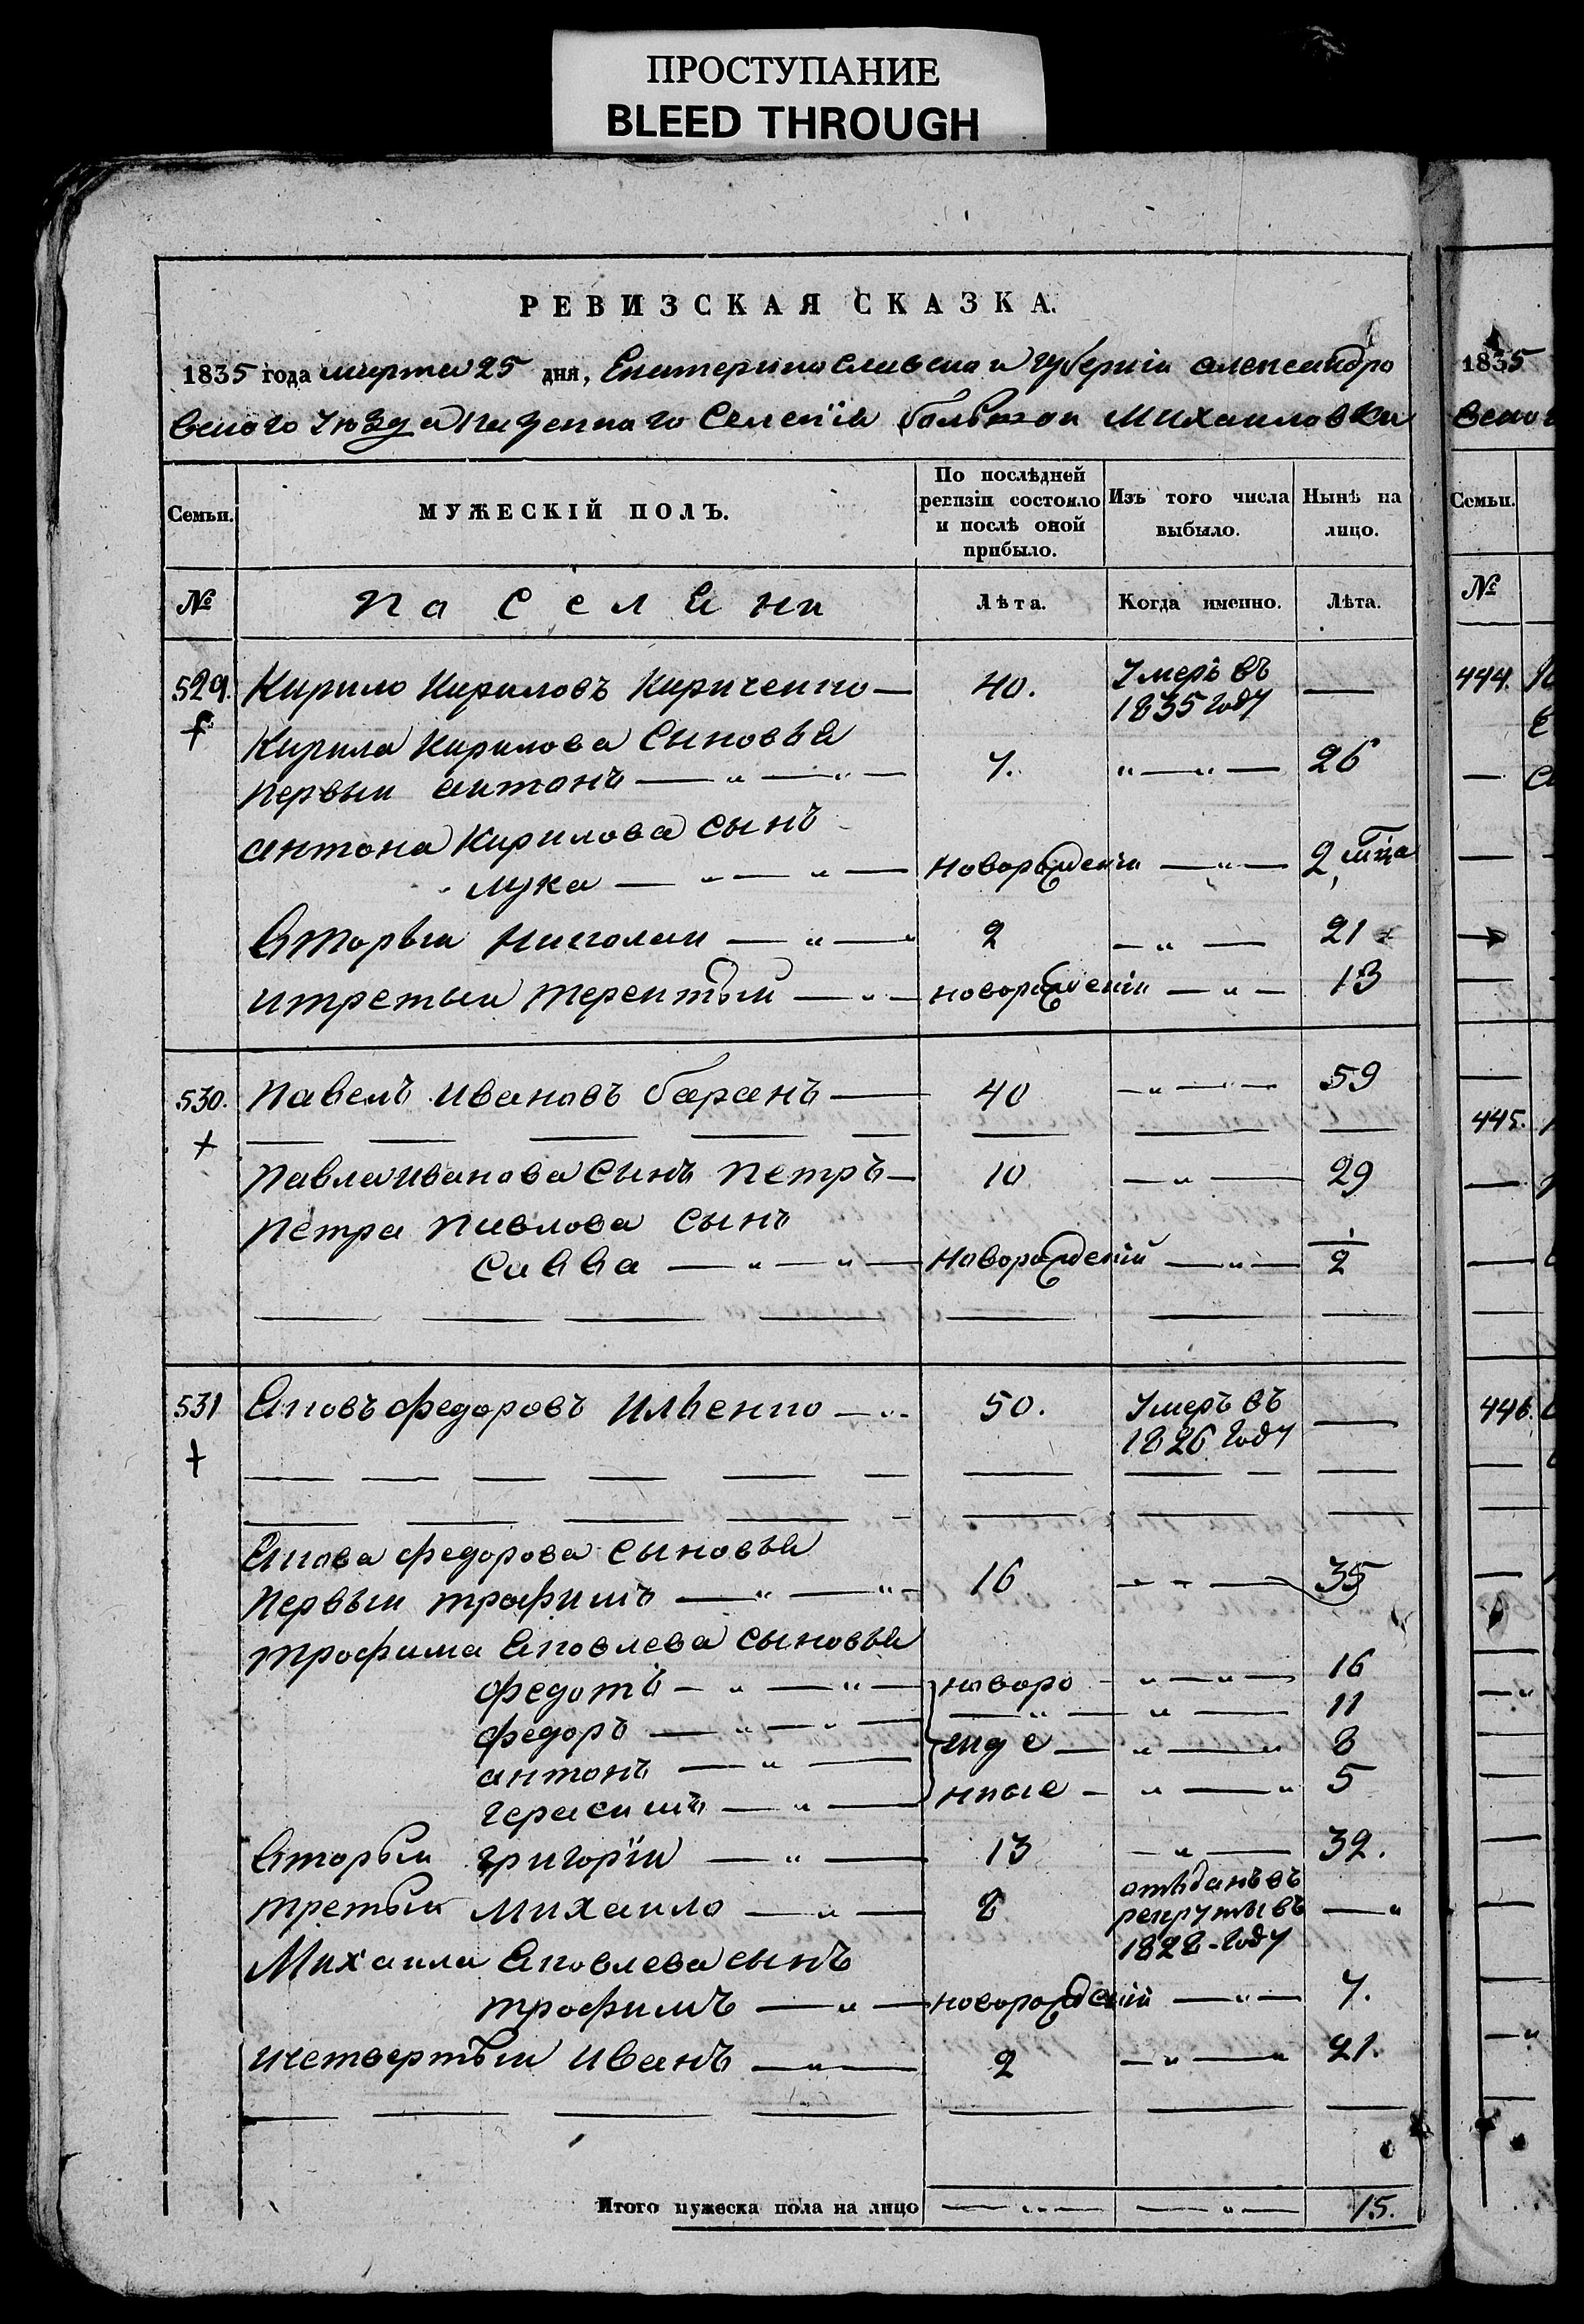 ПРОСТУПАНИЕ
BLEED THROUGH
РЕВИЗСКАЯ СКАЗКА.
1835 года марта 25 дня, Екатеринославской губерніи александро
вского уѣзда казенного Селенїя большои Михаиловки
Семьи. МУЖЕСКІЙ ПОЛЪ. По послѣдней ревизіи состояло и послѣ оной прибыло. Изъ того числа выбыло. Нынѣ на лицо.
№ поселяни Лѣта. Когда именно. Лѣта.
529. Кирило Кириловъ Кириченко — 40. Умеръ въ 1835 году —
Кирила Кирилова Сыновья
первыи антонъ — „ — „ — 7. „ — „ — 26
антона Кирилова сынъ
лука — „ — „ — новорожденъи — „ — 2 м-ца
вторыи николаи — „ — „ 2 — „ — 21
итретыи терентьи — „ — новорожденіи — „ — 13
530. павелъ ивановъ баранъ — 40 — „ — 59
павла иванова сынъ петръ — 10 — „ — 29
петра павлова сынъ
савва — „ — „ — новорожденіи — „ — 1/2
531 Яковъ федоровъ ильенко — „ 50. Умеръ въ 1826 году —
Якова федорова сыновья
первыи трофимъ — „ — „ 16 — „ — 35
трофима Яковлева сыновья
федотъ — „ — „ — новоро „ — „ — 16
федоръ — „ — „ — — „ — „ — 11
антонъ — „ — жде — „ — „ 8
герасимъ — „ — нные — „ — „ 5
вторыи григорїи — „ — 13 — „ — 32.
третыи михаило — „ — 8 отъданъ въ рекруты въ 1828 году — „
Михаила Яковлева сынъ
трофимъ — „ — новорожденіи — „ — 7.
ичетвертыи иванъ — „ — 2 — „ — „ 21.
Итого мужеска пола на лицо — „ — — „ — 15.
1835
вског
Семьи.
№
444.
445.
446.